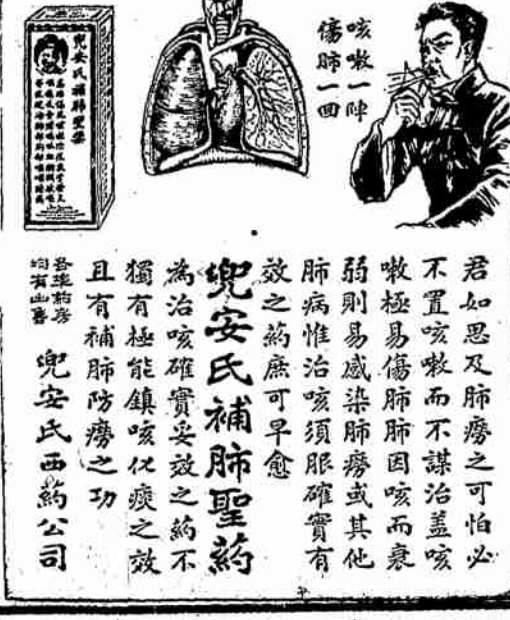 咳嗽一陣
傷肺一回
兜安氏補肺聖藥
君如思及肺癆之可怕必
不置咳嗽而不謀治蓋咳
嗽極易傷肺肺因咳而衰
弱則易感染肺癆或其他
肺病惟治咳須服確實有
效之葯庶可早愈
兜安氏補肺聖葯
為治咳確實妥效之葯不
獨有極能鎮咳化痰之效
且有補肺防癆之功
各埠葯房
均有出售
兜安氏西葯公司